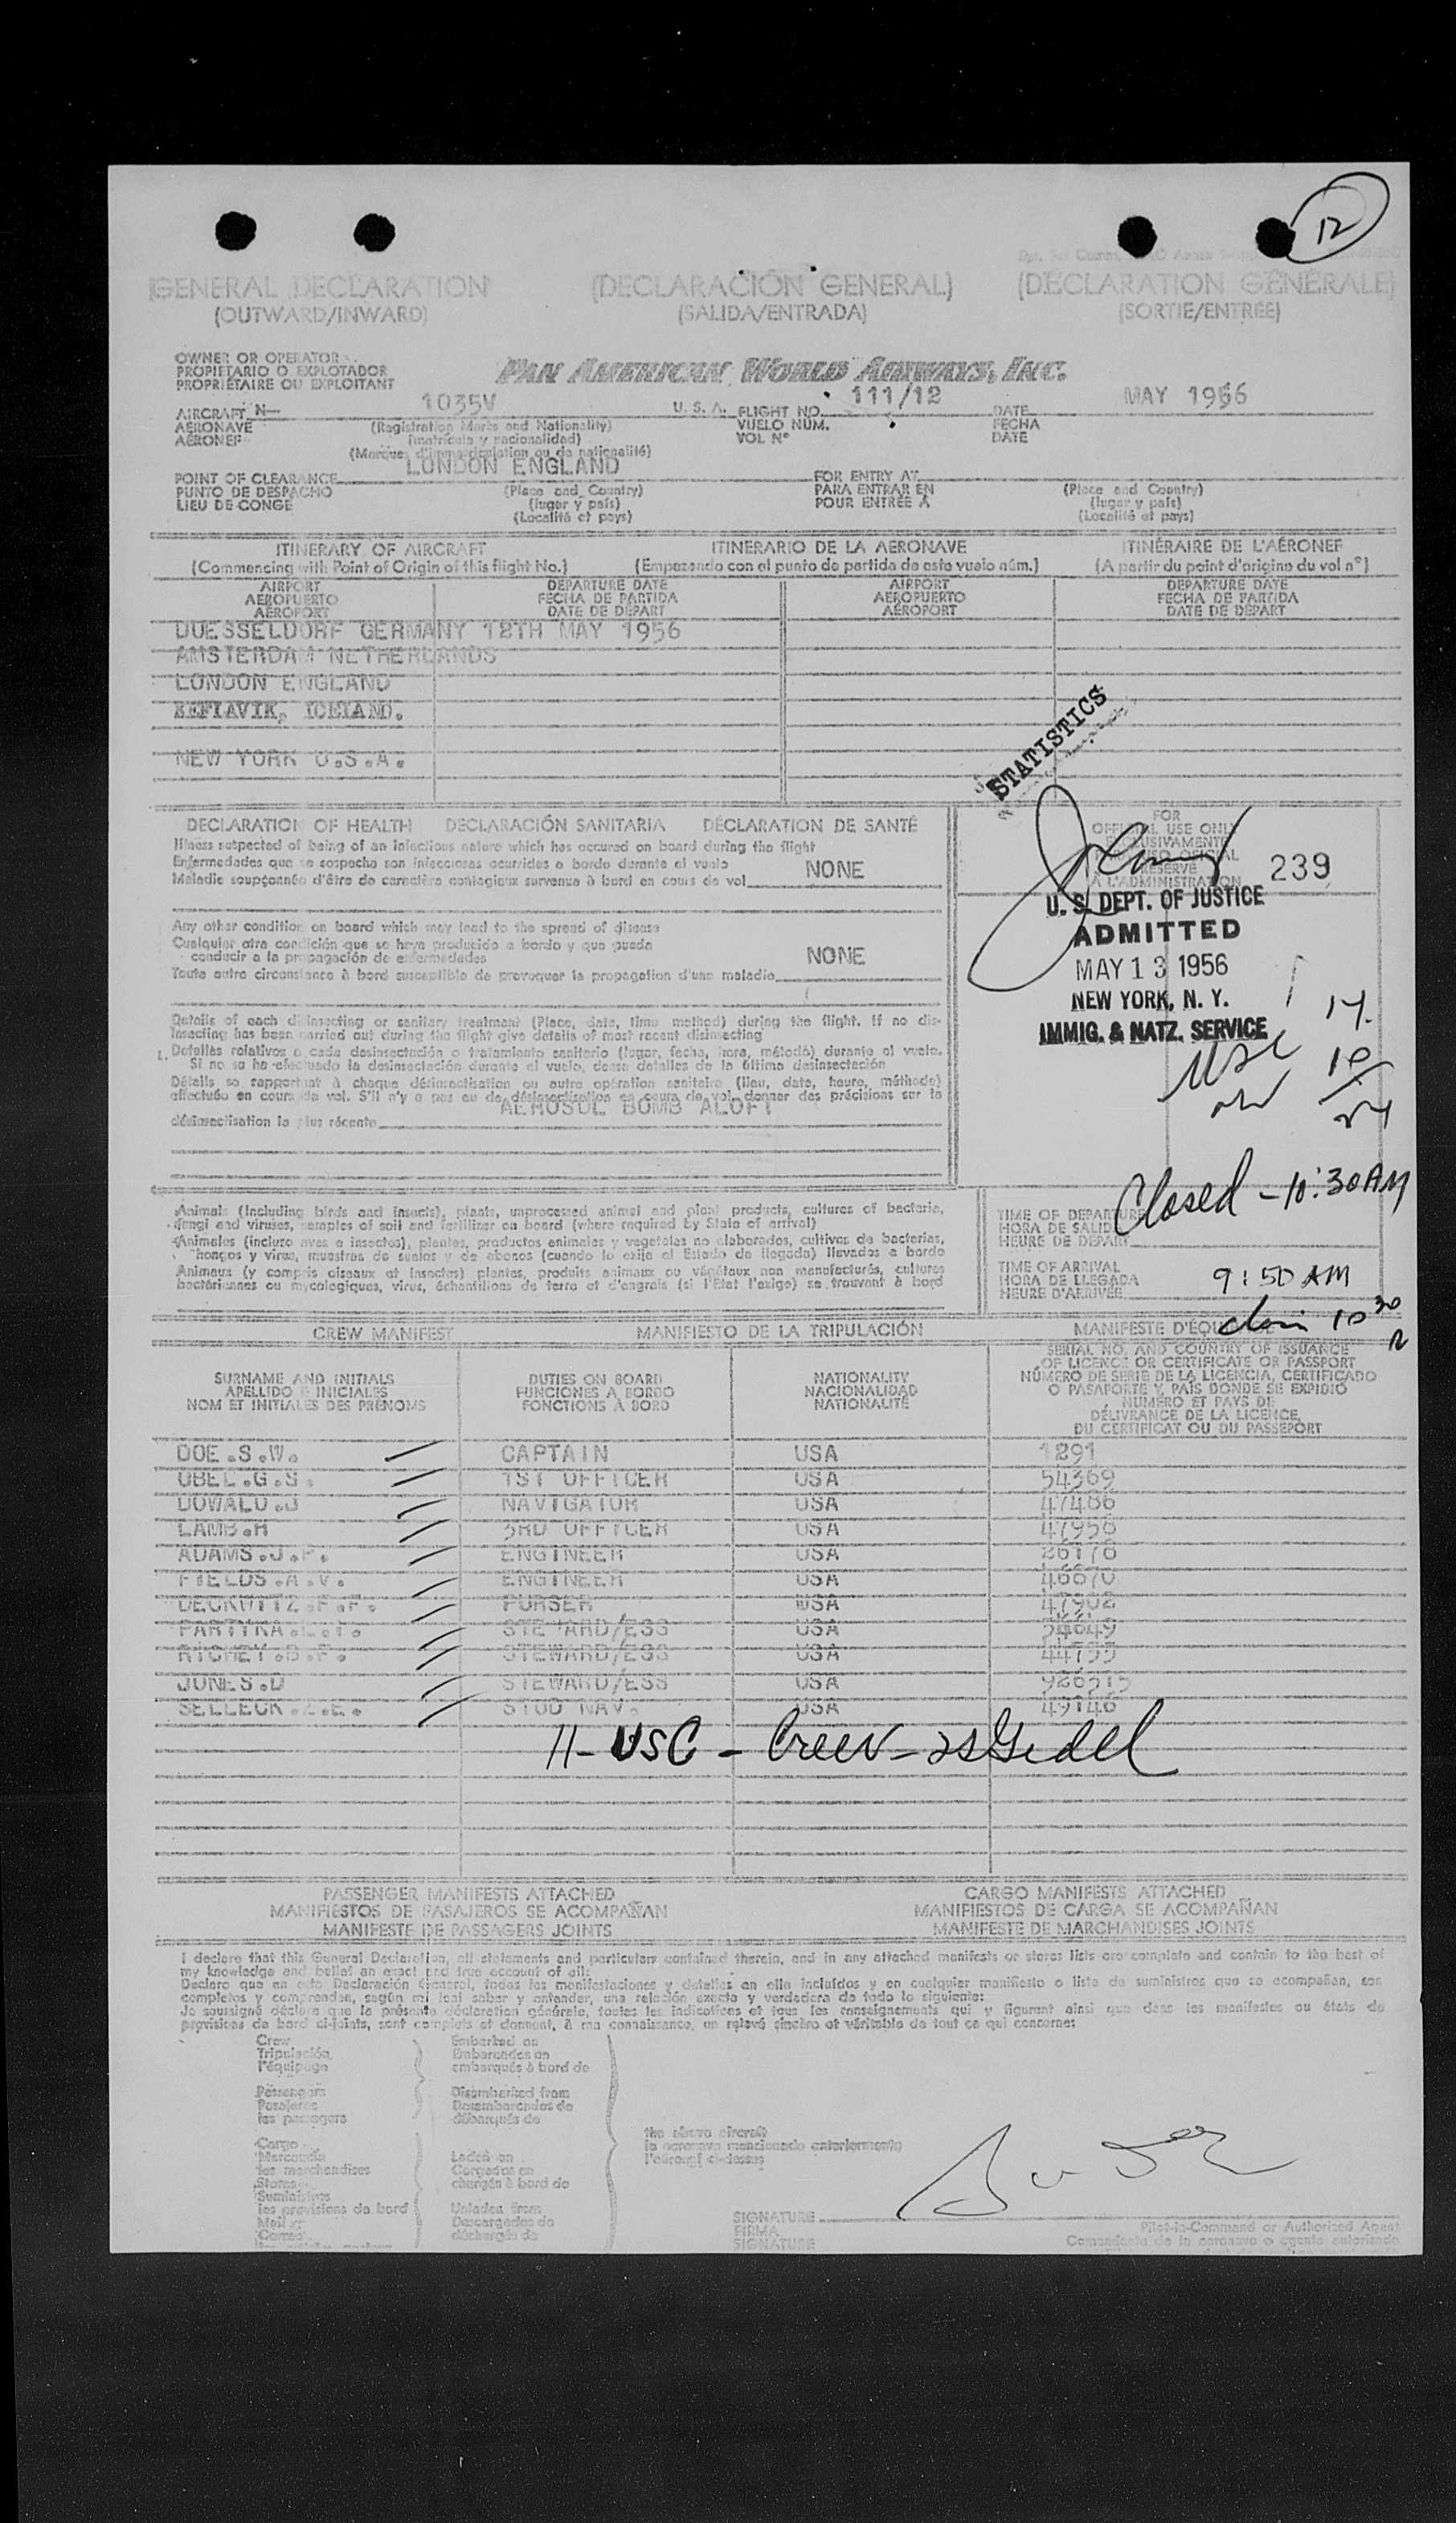 12
GENERAL DECLARATION
(OUTWARD/INWARD)
(DECLARACIÓN GENERAL)
(SALIDA/ENTRADA)
(DÉCLARATION GÉNÉRALE)
(SORTIE/ENTRÉE)
OWNER OR OPERATOR
PROPIETARIO O EXPLOTADOR
PROPRIÉTAIRE OU EXPLOITANT
PAN AMERICAN WORLD AIRWAYS, INC.
AIRCRAFT N— 1035V U. S. A. FLIGHT NO. 111/12 DATE MAY 1956
AERONAVE (Registration Marks and Nationality) VUELO NÚM. FECHA
AÉRONEF (matrícula y nacionalidad) VOL Nº DATE
(Marques d'immatriculation ou de nationalité)
POINT OF CLEARANCE LONDON ENGLAND FOR ENTRY AT
PUNTO DE DESPACHO (Place and Country) PARA ENTRAR EN (Place and Country)
LIEU DE CONGE (lugar y país) POUR ENTRÉE A (lugar y país)
(Localité et pays) (Localité et pays)
ITINERARY OF AIRCRAFT ITINERARIO DE LA AERONAVE ITINÉRAIRE DE L'AÉRONEF
(Commencing with Point of Origin of this flight No.) (Empezando con el punto de partida de este vuelo núm.) (A partir du point d'origine du vol nº)
AIRPORT DEPARTURE DATE AIRPORT DEPARTURE DATE
AEROPUERTO FECHA DE PARTIDA AEROPUERTO FECHA DE PARTIDA
AÉROPORT DATE DE DÉPART AÉROPORT DATE DE DÉPART
DUESSELDORF GERMANY 12TH MAY 1956
AMSTERDAM NETHERLANDS
LONDON ENGLAND
KEFLAVIK, ICELAND.
NEW YORK U.S.A.
STATISTICS
DECLARATION OF HEALTH DECLARACIÓN SANITARIA DÉCLARATION DE SANTÉ
Illness suspected of being of an infectious nature which has occured on board during the flight
Enfermedades que se sospecha son infecciosas ocurridas a bordo durante el vuelo
Maladie soupçonnée d'être de caractère contagieux survenue à bord en cours de vol NONE
Any other condition on board which may lead to the spread of disease
Cualquier otra condición que se haya producido a bordo y que pueda
conducir a la propagación de enfermedades
Toute autre circonstance à bord susceptible de provoquer la propagation d'une maladie NONE
Details of each disinsecting or sanitary treatment (Place, date, time method) during the flight. If no dis-
insecting has been carried out during the flight give details of most recent disinsecting
Detalles relativos a cada desinsectación o tratamiento sanitario (lugar, fecha, hora, método) durante el vuelo.
Si no se ha efectuado la desinsectación durante el vuelo, dense detalles de la última desinsectación
Détails se rapportant à chaque désinsectisation ou autre opération sanitaire (lieu, date, heure, méthode)
effectuée en cours de vol. S'il n'y a pas eu de désinsectisation en cours de vol, donner des précisions sur la
AEROSOL BOMB ALOFT
désinsectisation la plus récente
FOR
OFFICIAL USE ONLY
EXCLUSIVAMENTE
USO OFICIAL
RÉSERVÉ
A L'ADMINISTRATION
239
U. S. DEPT. OF JUSTICE
ADMITTED
MAY 13 1956
NEW YORK, N. Y.
IMMIG. & NATZ. SERVICE
Closed - 10:30 AM
Animals (including birds and insects), plants, unprocessed animal and plant products, cultures of bacteria,
fungi and viruses, samples of soil and fertilizer on board (where required by State of arrival)
Animales (incluso aves e insectos), plantas, productos animales y vegetales no elaborados, cultivos de bacterias,
hongos y virus, muestras de suelos y de abonos (cuando lo exija el Estado de llegada) llevados a bordo
Animaux (y compris oiseaux et insectes) plantes, produits animaux ou végétaux non manufacturés, cultures
bactériennes ou mycologiques, virus, échantillons de terre et d'engrais (si l'État l'exige) se trouvant à bord
TIME OF DEPARTURE
HORA DE SALIDA
HEURE DE DÉPART
TIME OF ARRIVAL
HORA DE LLEGADA
HEURE D'ARRIVÉE 9:50 AM
CREW MANIFEST MANIFIESTO DE LA TRIPULACIÓN MANIFESTE D'ÉQUIPAGE
SURNAME AND INITIALS
APELLIDO E INICIALES
NOM ET INITIALES DES PRÉNOMS
DUTIES ON BOARD
FUNCIONES A BORDO
FONCTIONS À BORD
NATIONALITY
NACIONALIDAD
NATIONALITÉ
SERIAL NO. AND COUNTRY OF ISSUANCE
OF LICENCE OR CERTIFICATE OR PASSPORT
NÚMERO DE SERIE DE LA LICENCIA, CERTIFICADO
O PASAPORTE Y PAÍS DONDE SE EXPIDIÓ
NUMÉRO ET PAYS DE
DÉLIVRANCE DE LA LICENCE,
DU CERTIFICAT OU DU PASSEPORT
DOE.S.W. CAPTAIN USA 1891
OBEL.G.S. 1ST OFFICER USA 54369
DOWALO.J NAVIGATOR USA 47486
LAMB.H 3RD OFFICER USA 47958
ADAMS.J.P. ENGINEER USA 26178
FIELDS.A.V. ENGINEER USA 46670
DECKWITZ.F.F. PURSER USA 47902
PARTYKA.L.T. STEWARD/ESS USA 54649
RICHEY.B.F. STEWARD/ESS USA 44755
JONES.D STEWARD/ESS USA 926515
SELLECK.Z.E. STUD NAV. USA 49146
11 - USC - Crew -
PASSENGER MANIFESTS ATTACHED
MANIFIESTOS DE PASAJEROS SE ACOMPAÑAN
MANIFESTE DE PASSAGERS JOINTS
CARGO MANIFESTS ATTACHED
MANIFIESTOS DE CARGA SE ACOMPAÑAN
MANIFESTE DE MARCHANDISES JOINTS
I declare that this General Declaration, all statements and particulars contained therein, and in any attached manifests or stores lists are complete and contain to the best of
my knowledge and belief an exact and true account of all:
Declaro que en esta Declaración General, todas las manifestaciones y detalles en ella incluídos y en cualquier manifiesto o lista de suministros que se acompañan, son
completos y comprenden, según mi leal saber y entender, una relación exacta y verdadera de todo lo siguiente:
Je soussigné déclare que la présente déclaration générale, toutes les indications et tous les renseignements qui y figurent ainsi que dans les manifestes ou états de
provisions de bord ci-joints, sont complets et donnent, à ma connaissance, un relevé sincère et véritable de tout ce qui concerne:
Crew
Tripulación
l'équipage
Passengers
Pasajeros
les passagers
Cargo
Mercancía
les marchandises
Stores
Suministros
les provisions de bord
Mail
Correo
Embarked on
Embarcados en
embarqués à bord de
Disembarked from
Desembarcados de
débarqués de
Laden on
Cargados en
chargés à bord de
Unladen from
Descargados de
déchargés de
the above aircraft
la aeronave mencionada anteriormente
l'aéronef ci-dessus
SIGNATURE
FIRMA
SIGNATURE
Pilot-in-Command or Authorized Agent
Comandante de la aeronave o agente autorizado